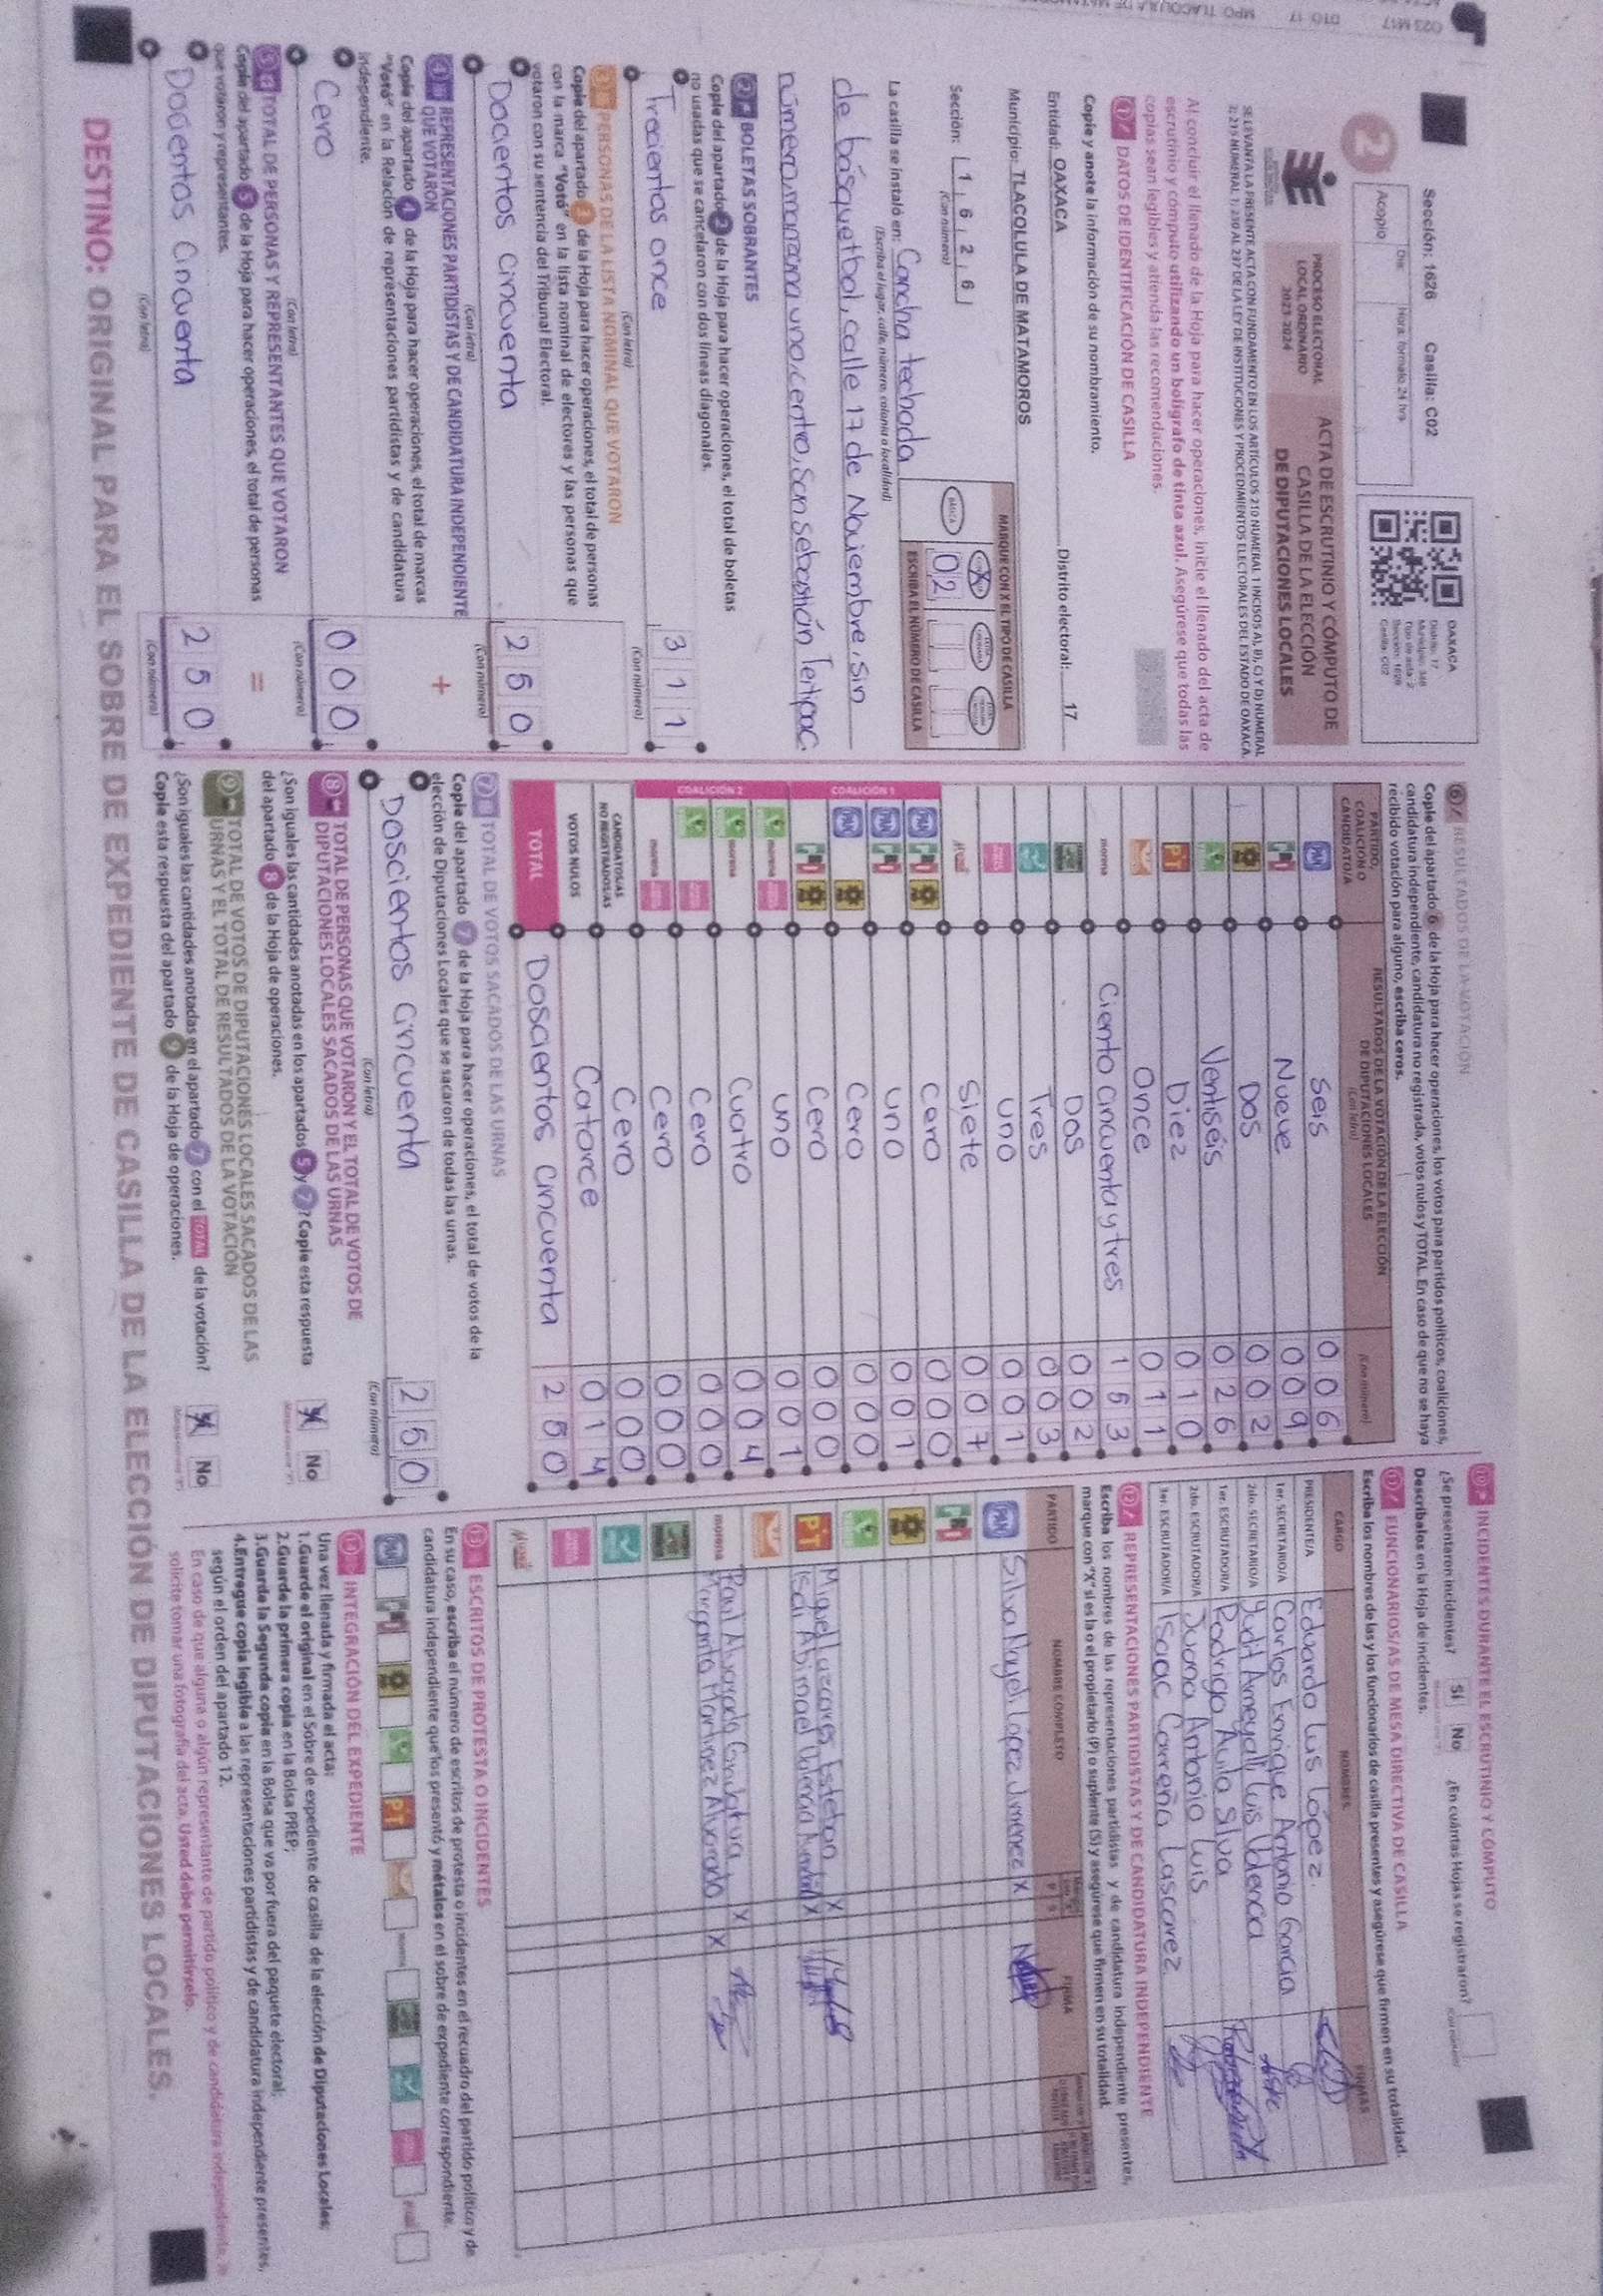 Sección: 1626 Casilla: C02
2
Día:
Hora: formato 24 hrs
Acopio
OAXACA
Distrito: 17
Tipo de acta: 2
Sección: 1626
Casilla: C02
PROCESO ELECTORAL
LOCAL ORDINARIO
2023-2024
ACTA DE ESCRUTINIO Y CÓMPUTO DE
CASILLA DE LA ELECCIÓN
DE DIPUTACIONES LOCALES
Al concluir el llenado de la Hoja para hacer operaciones, inicie el llenado del acta de
escrutinio y cómputo utilizando un bolígrafo de tinta azul. Asegúrese que todas las
copias sean legibles y atienda las recomendaciones.
1 DATOS DE IDENTIFICACIÓN DE CASILLA
Copie y anote la información de su nombramiento.
Entidad: OAXACA Distrito electoral: 17
Municipio: TLACOLULA DE MATAMOROS
Sección: 1 6 2 6
(Con número)
MARQUE CON X EL TIPO DE CASILLA
BÁSICA X
ESCRIBA EL NÚMERO DE CASILLA
0 2
La casilla se instaló en: Cancha techada
(Escriba el lugar, calle, número, colonia o localidad)
de básquetbol, calle 17 de Noviembre, sin
número, manzana uno, centro, San Sebastián Teitipac
2 BOLETAS SOBRANTES
Copie del apartado 2 de la Hoja para hacer operaciones, el total de boletas
no usadas que se cancelaron con dos líneas diagonales.
Trecientos once 3 1 1
(Con letra) (Con número)
3 PERSONAS DE LA LISTA NOMINAL QUE VOTARON
Copie del apartado 3 de la Hoja para hacer operaciones, el total de personas
con la marca "Votó" en la lista nominal de electores y las personas que
votaron con su sentencia del Tribunal Electoral.
Docientos cincuenta 2 5 0
(Con letra) (Con número)
4 REPRESENTACIONES PARTIDISTAS Y DE CANDIDATURA INDEPENDIENTE
QUE VOTARON
+
Copie del apartado 4 de la Hoja para hacer operaciones, el total de marcas
"Votó" en la Relación de representaciones partidistas y de candidatura
independiente.
Cero 0 0 0
(Con letra) (Con número)
5 TOTAL DE PERSONAS Y REPRESENTANTES QUE VOTARON
=
Copie del apartado 5 de la Hoja para hacer operaciones, el total de personas
que votaron y representantes.
Docientos cincuenta 2 5 0
(Con letra) (Con número)
6 RESULTADOS DE LA VOTACIÓN
Copie del apartado 6 de la Hoja para hacer operaciones, los votos para partidos políticos, coaliciones,
candidatura independiente, candidatura no registrada, votos nulos y TOTAL. En caso de que no se haya
recibido votación para alguno, escriba ceros.
PARTIDO,
COALICIÓN O
CANDIDATO/A
RESULTADOS DE LA VOTACIÓN DE LA ELECCIÓN
DE DIPUTACIONES LOCALES
(Con letra) (Con número)
PAN Seis 0 0 6
PRI Nueve 0 0 9
Dos 0 0 2
Ventiséis 0 2 6
PT Diez 0 1 0
Once 0 1 1
morena Ciento cincuenta y tres 1 5 3
Dos 0 0 2
Tres 0 0 3
uno 0 0 1
Siete 0 0 7
COALICIÓN 1
PAN PRI cero 0 0 0
PAN PRI uno 0 0 1
PAN cero 0 0 0
PRI cero 0 0 0
COALICIÓN 2
morena uno 0 0 1
morena cuatro 0 0 4
cero 0 0 0
morena cero 0 0 0
CANDIDATOS/AS
NO REGISTRADOS/AS Cero 0 0 0
VOTOS NULOS Catorce 0 1 4
TOTAL Doscientos cincuenta 2 5 0
7 TOTAL DE VOTOS SACADOS DE LAS URNAS
Copie del apartado 7 de la Hoja para hacer operaciones, el total de votos de la
elección de Diputaciones Locales que se sacaron de todas las urnas.
Doscientos cincuenta 2 5 0
(Con letra) (Con número)
8 TOTAL DE PERSONAS QUE VOTARON Y EL TOTAL DE VOTOS DE
DIPUTACIONES LOCALES SACADOS DE LAS URNAS
¿Son iguales las cantidades anotadas en los apartados 5 y 7? Copie esta respuesta
del apartado 8 de la Hoja de operaciones.
X No
9 TOTAL DE VOTOS DE DIPUTACIONES LOCALES SACADOS DE LAS
URNAS Y EL TOTAL DE RESULTADOS DE LA VOTACIÓN
¿Son iguales las cantidades anotadas en el apartado 7 con el TOTAL de la votación?
Copie esta respuesta del apartado 9 de la Hoja de operaciones.
X No
10 INCIDENTES DURANTE EL ESCRUTINIO Y CÓMPUTO
¿Se presentaron incidentes? Sí No ¿En cuántas Hojas se registraron?
Descríbalos en la Hoja de incidentes.
11 FUNCIONARIOS/AS DE MESA DIRECTIVA DE CASILLA
Escriba los nombres de las y los funcionarios de casilla presentes y asegúrese que firmen en su totalidad.
CARGO NOMBRES FIRMAS
PRESIDENTE/A Eduardo Luis López
1er. SECRETARIO/A Carlos Enrique Antonio García
2do. SECRETARIO/A Yudit Ameyalli Luis Valencia
1er. ESCRUTADOR/A Rodrigo Avila Silva
2do. ESCRUTADOR/A Juana Antonio Luis
3er. ESCRUTADOR/A Isaac Carreño Lascarez
12 REPRESENTACIONES PARTIDISTAS Y DE CANDIDATURA INDEPENDIENTE
Escriba los nombres de las representaciones partidistas y de candidatura independiente presentes,
marque con "X" si es la o el propietario (P) o suplente (S) y asegúrese que firmen en su totalidad.
PARTIDO NOMBRE COMPLETO P S FIRMA
PAN Silvia Nayeli López Jimenez X
PRI
Miguel Lazcares Esteban X
PT Isai Abimael X
morena Raul Alvarado X
Margarita Martinez Alvarado X
13 ESCRITOS DE PROTESTA O INCIDENTES
En su caso, escriba el número de escritos de protesta o incidentes en el recuadro del partido político y de
candidatura independiente que los presentó y métalos en el sobre de expediente correspondiente.
14 INTEGRACIÓN DEL EXPEDIENTE
Una vez llenada y firmada el acta:
1.Guarde el original en el Sobre de expediente de casilla de la elección de Diputaciones Locales;
2.Guarde la primera copia en la Bolsa PREP;
3.Guarde la Segunda copia en la Bolsa que va por fuera del paquete electoral;
4.Entregue copia legible a las representaciones partidistas y de candidatura independiente presentes,
según el orden del apartado 12.
En caso de que alguna o algún representante de partido político y de candidatura independiente,
solicite tomar una fotografía del acta, Usted debe permitírselo.
DESTINO: ORIGINAL PARA EL SOBRE DE EXPEDIENTE DE CASILLA DE LA ELECCIÓN DE DIPUTACIONES LOCALES.